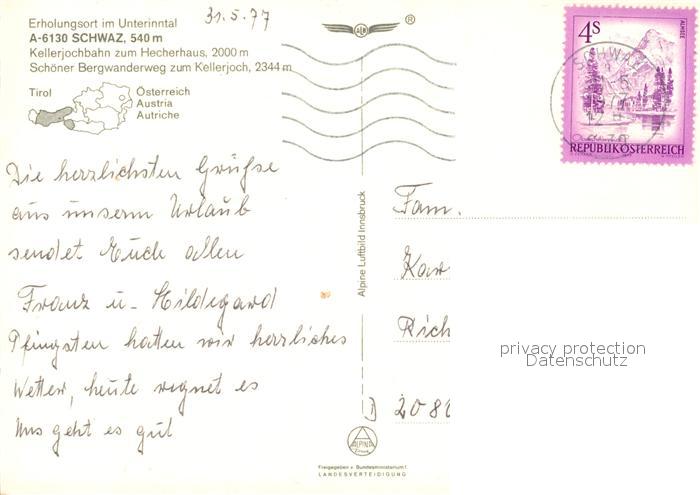 31.5.77
Erholungsort im Unterinntal
A-6130 SCHWAZ, 540 m
Kellerjochbahn zum Hecherhaus, 2000 m
Schöner Bergwanderweg zum Kellerjoch, 2344 m
Tirol
Österreich
Austria
Autriche
®
4S
ALMSEE
REPUBLIK ÖSTERREICH
SCHWAZ
Die herzlichsten Grüße
aus unserm Urlaub
sendet Euch allen
Franz u. Hildegard
Pfingsten hatten wir herrliches
Wetter, heute regnet es
Uns geht es gut
Alpine Luftbild Innsbruck
Fam.
Kar
Rich
D 208
privacy protection
Datenschutz
ALPINE
Freigegeben v. Bundesministerium f.
LANDESVERTEIDIGUNG